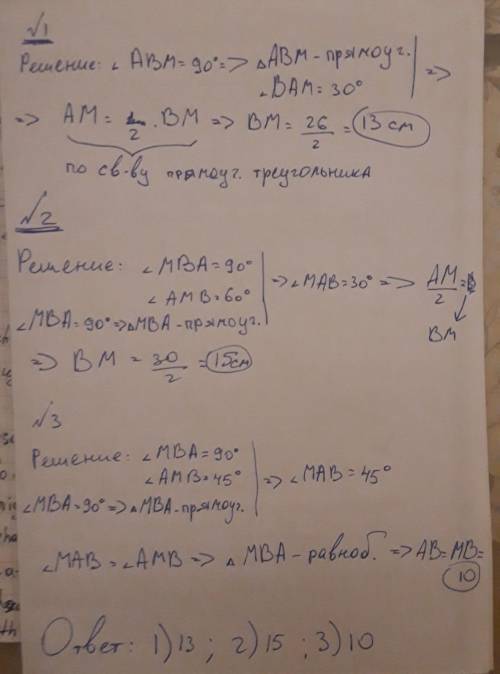 №1
Решение: ∠ABM = 90° => △ABM - прямоуг.
∠BAM = 30° =>
=> AM = 2 · BM => BM = 26/2 = 13 см
по св-ву прямоуг. треугольника
№2
Решение: ∠MBA = 90°
∠AMB = 60° => ∠MAB = 30° => AM/2 =
∠MBA = 90° => △MBA - прямоуг.
BM
=> BM = 30/2 = 15см
№3
Решение: ∠MBA = 90°
∠AMB = 45° => ∠MAB = 45°
∠MBA = 90° => △MBA - прямоуг.
∠MAB = ∠AMB => △MBA - равноб. => AB = MB =
10
Ответ: 1) 13 ; 2) 15 ; 3) 10